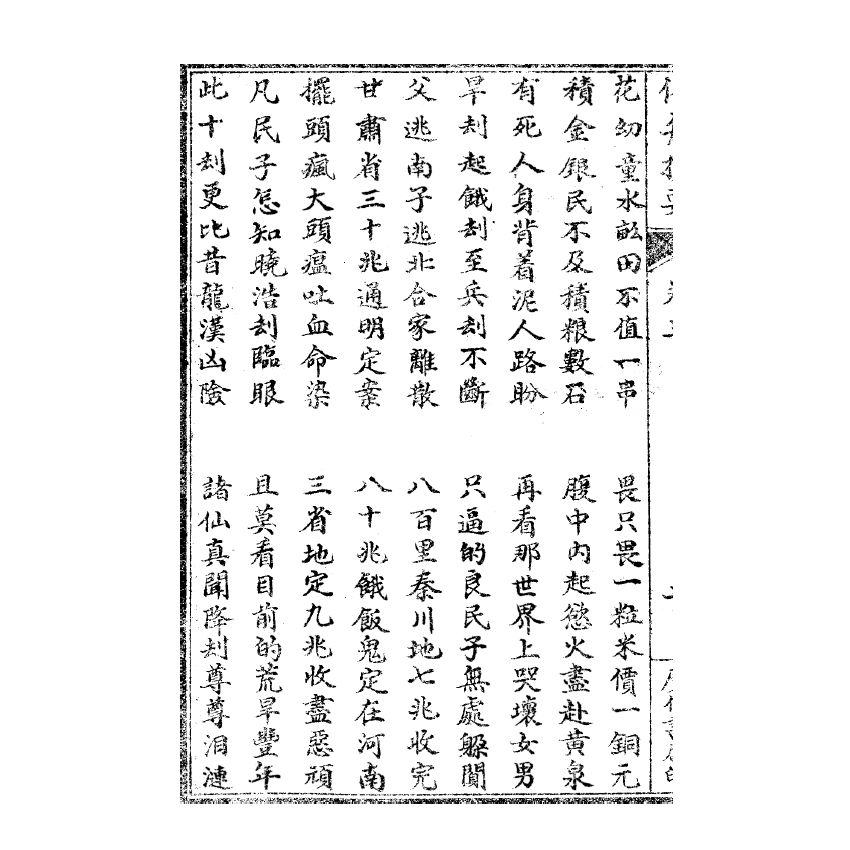 花幼童水畝田不值一串　畏只畏一粒米價一銅元
積金銀民不及積粮數石　腹中內起慾火盡赴黃泉
有死人身背着泥人路盼　再看那世界上哭壞女男
旱刦起餓刦至兵刦不斷　只逼的良民子無處躲閒
父逃南子逃北合家離散　八百里秦川地七兆收完
甘肅省三十兆通明定案　八十兆餓飯鬼定在河南
擺頭瘋大頭瘟吐血命染　三省地定九兆收盡惡頑
凡民子怎知曉浩刦臨眼　且莫看目前的荒旱豐年
此十刦更比昔龍漢凶險　諸仙真聞降刦尊尊泪漣